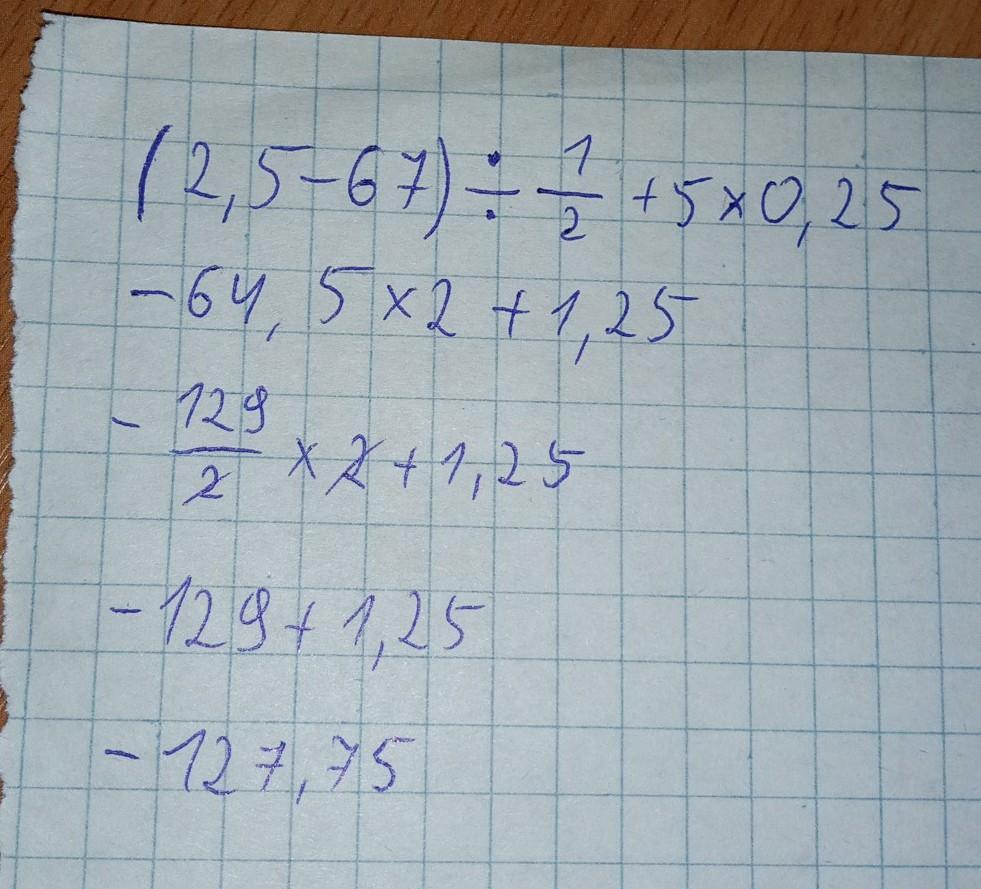 (2,5-67)÷1/2+5×0,25
-64,5×2+1,25
-129/2×2+1,25
-129+1,25
-127,75